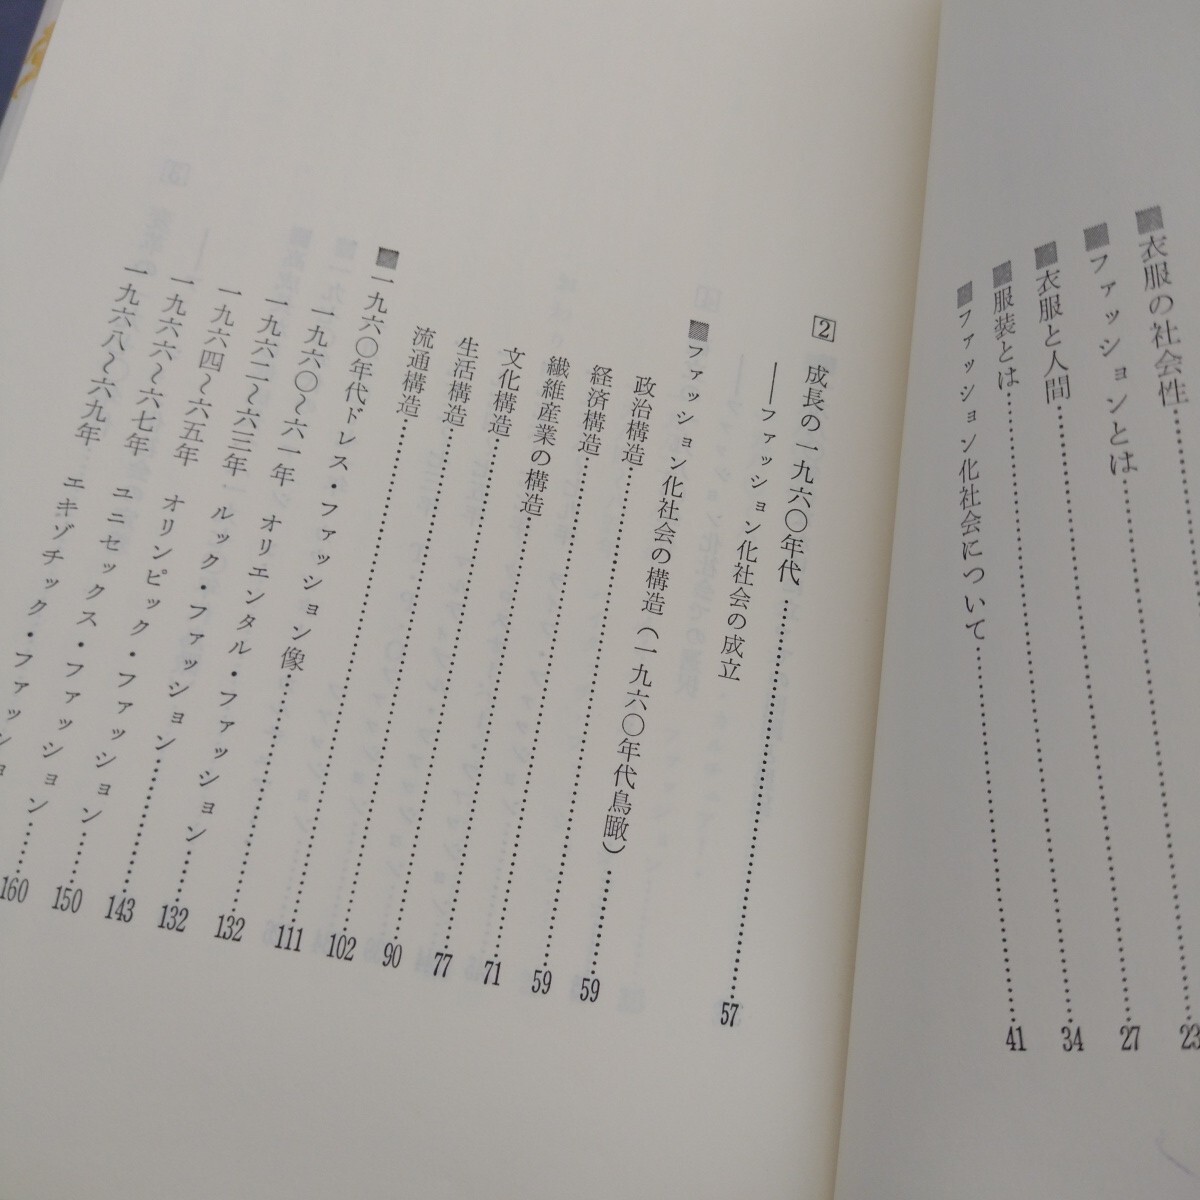 ■衣服の社会性……
■ファッションとは……23
■衣服と人間……27
■服装とは……34
■ファッション化社会について……41
2 成長の一九六〇年代……57
――ファッション化社会の成立
■ファッション化社会の構造(一九六〇年代鳥瞰)……59
政治構造……59
経済構造……71
繊維産業の構造……77
文化構造……90
生活構造……102
流通構造……111
■一九六〇年代ドレス・ファッション像……132
一九六〇〜六一年 オリエンタル・ファッション……132
一九六二〜六三年 ルック・ファッション……143
一九六四〜六五年 オリンピック・ファッション……150
一九六六〜六七年 ユニセックス・ファッション……160
一九六八〜六九年 エキゾチック・ファッショ